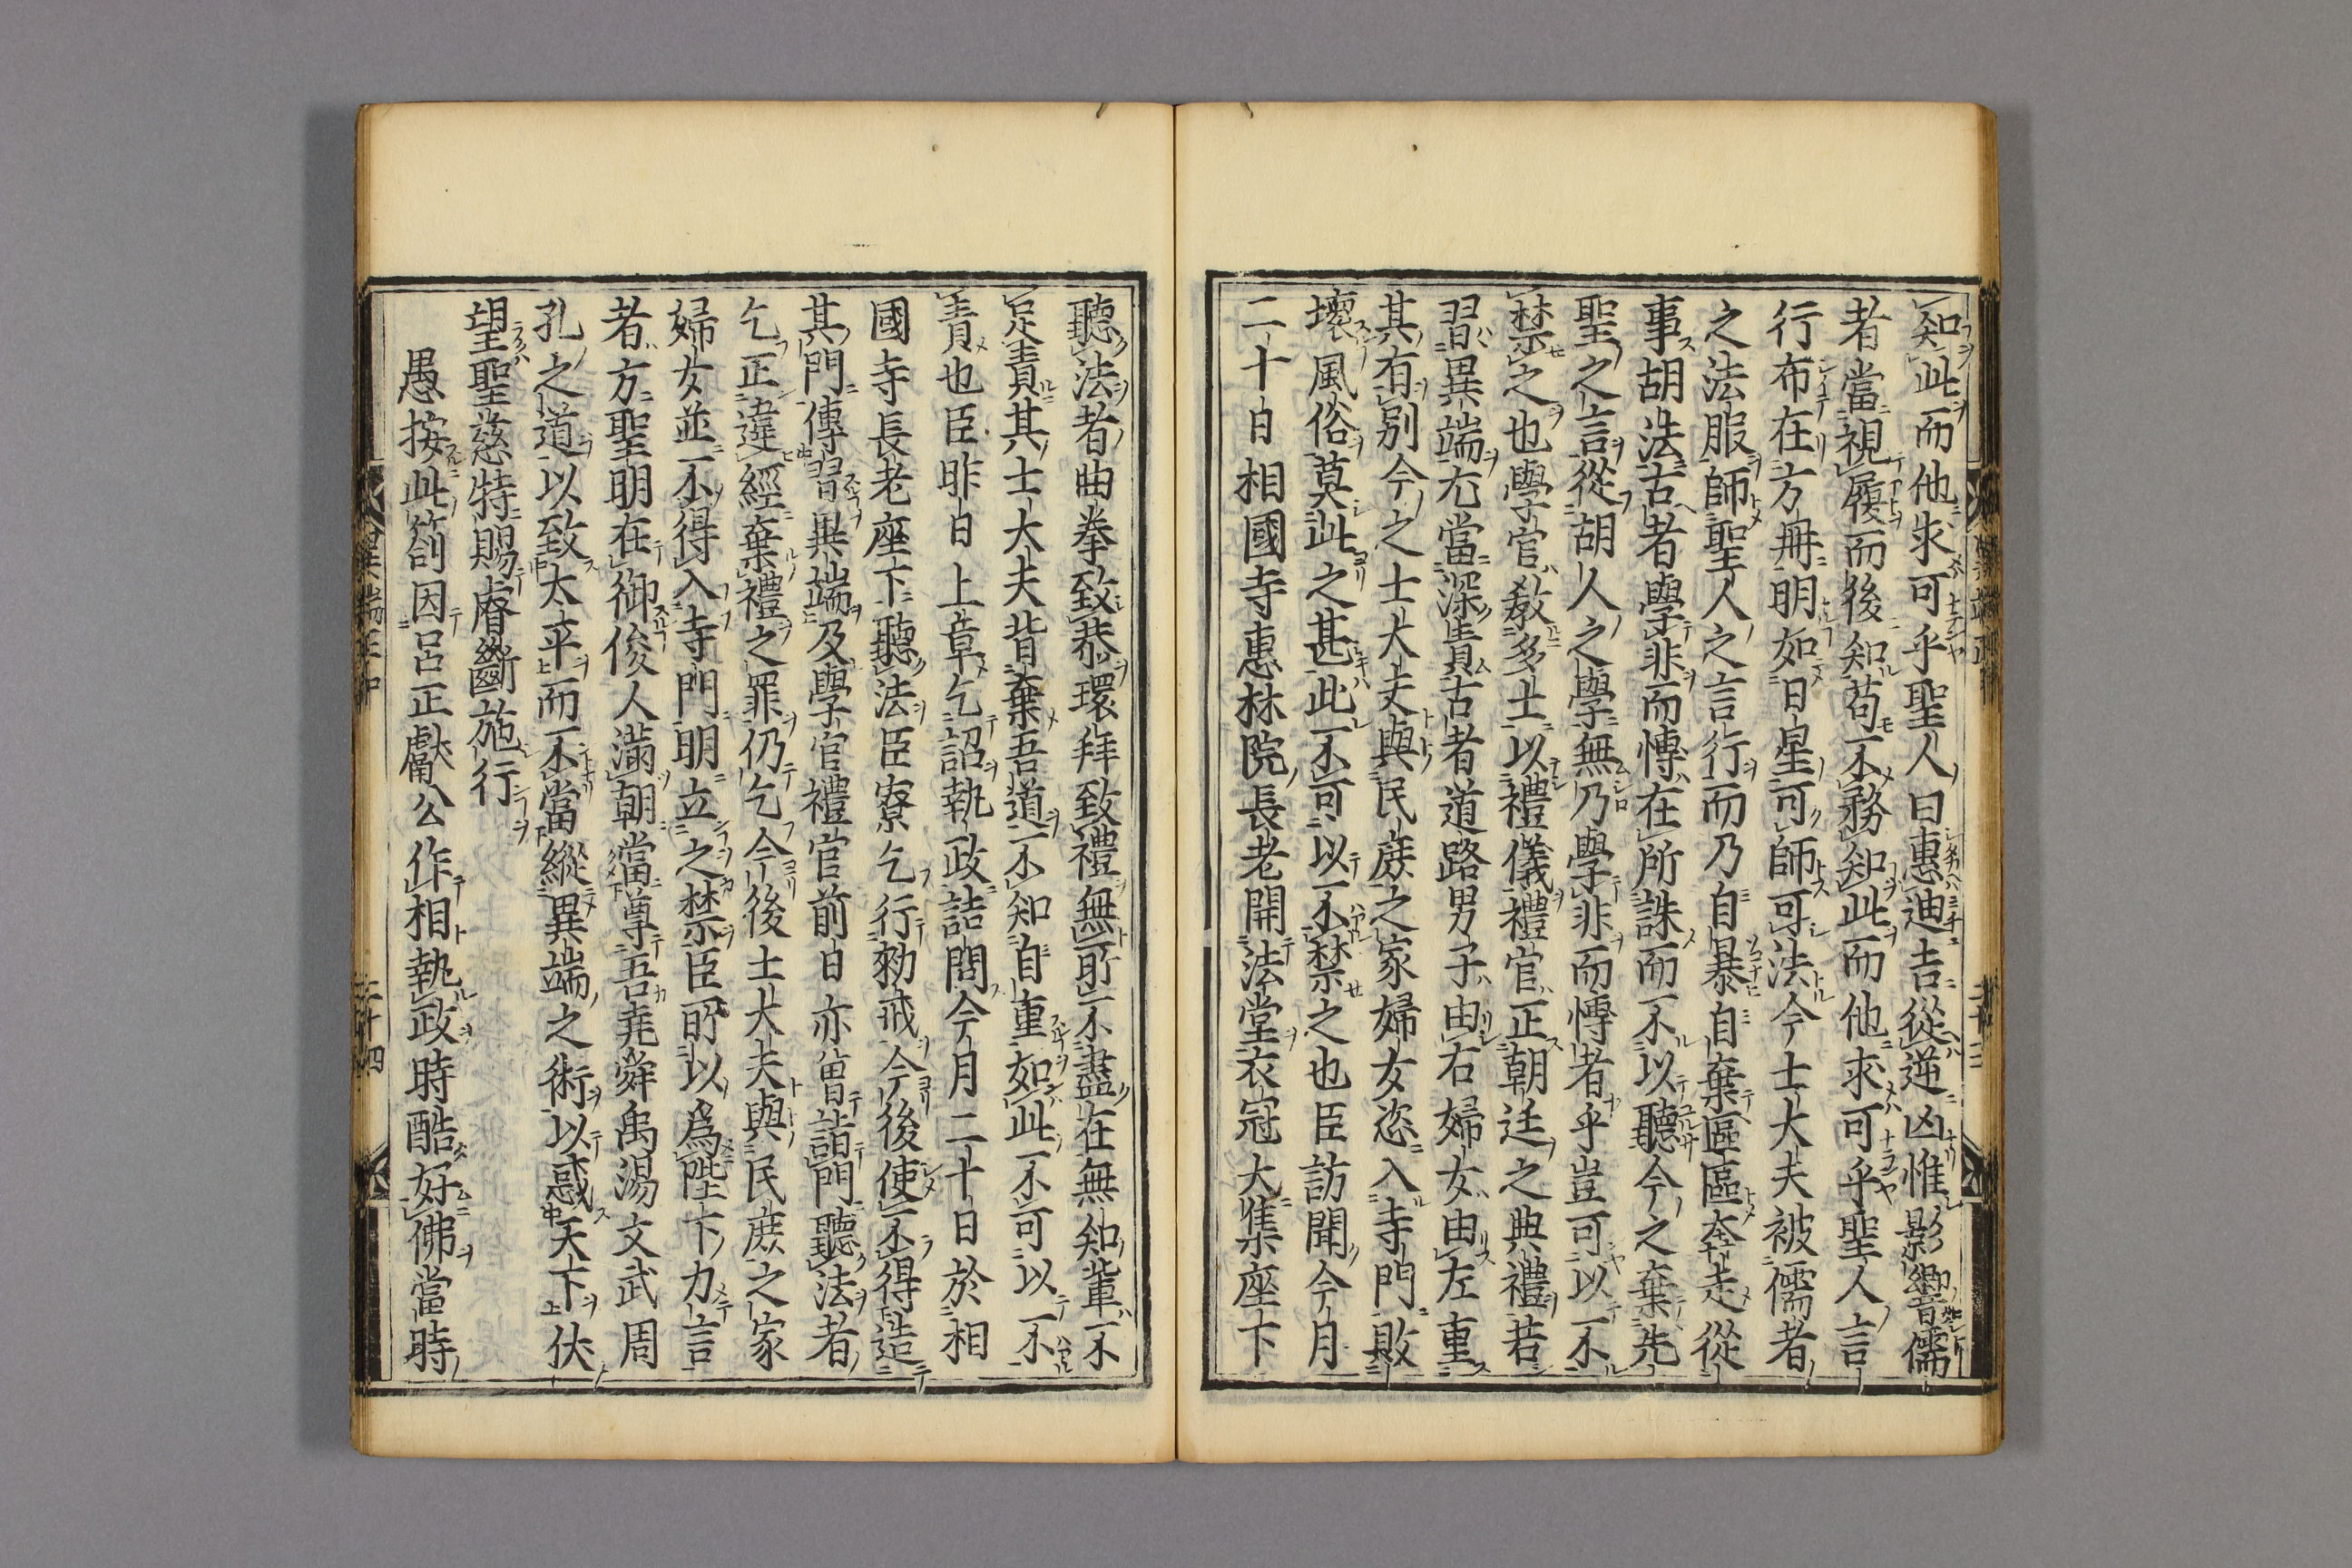 知此而他求可乎聖人曰惠迪吉從逆凶惟影響儒
者當視履而後知苟不務知此而他求可乎聖人言
行布在方冊明如日星可師可法今士大夫被儒者
之法服師聖人之言行而乃自暴自棄區區奔走從
事胡法古者學非而愽在所誅而不以聽今之棄先
聖之言從胡人之學無乃學非而愽者乎豈可以不
禁之也學官教多士以禮儀禮官正朝廷之典禮若
習異端尤當深責古者道路男子由右婦女由左重
其有別今之士大夫與民庶之家婦女恣入寺門敗
壞風俗莫此之甚此不可以不禁之也臣訪聞今月
二十日相國寺惠林院長老開法堂衣冠大集座下
聽法者曲拳致恭環拜致禮無所不盡在無知輩不
足責其士大夫背棄吾道不知自重如此不可以不
責也臣昨日上章乞詔執政詰問今月二十日於相
國寺長老座下聽法臣寮乞行勑戒今後使不得造
其門傳習異端及學官禮官前日亦曾詣門聽法者
乞正違經棄禮之罪仍乞今後士大夫與民庶之家
婦女並不得入寺門明立之禁臣所以爲陛下力言
者方聖明在御俊人滿朝當尊吾堯舜禹湯文武周
孔之道以致太平而不當縱異端之術以惑天下伏
望聖慈特賜睿斷施行
愚按此箚因呂正獻公作相執政時酷好佛當時